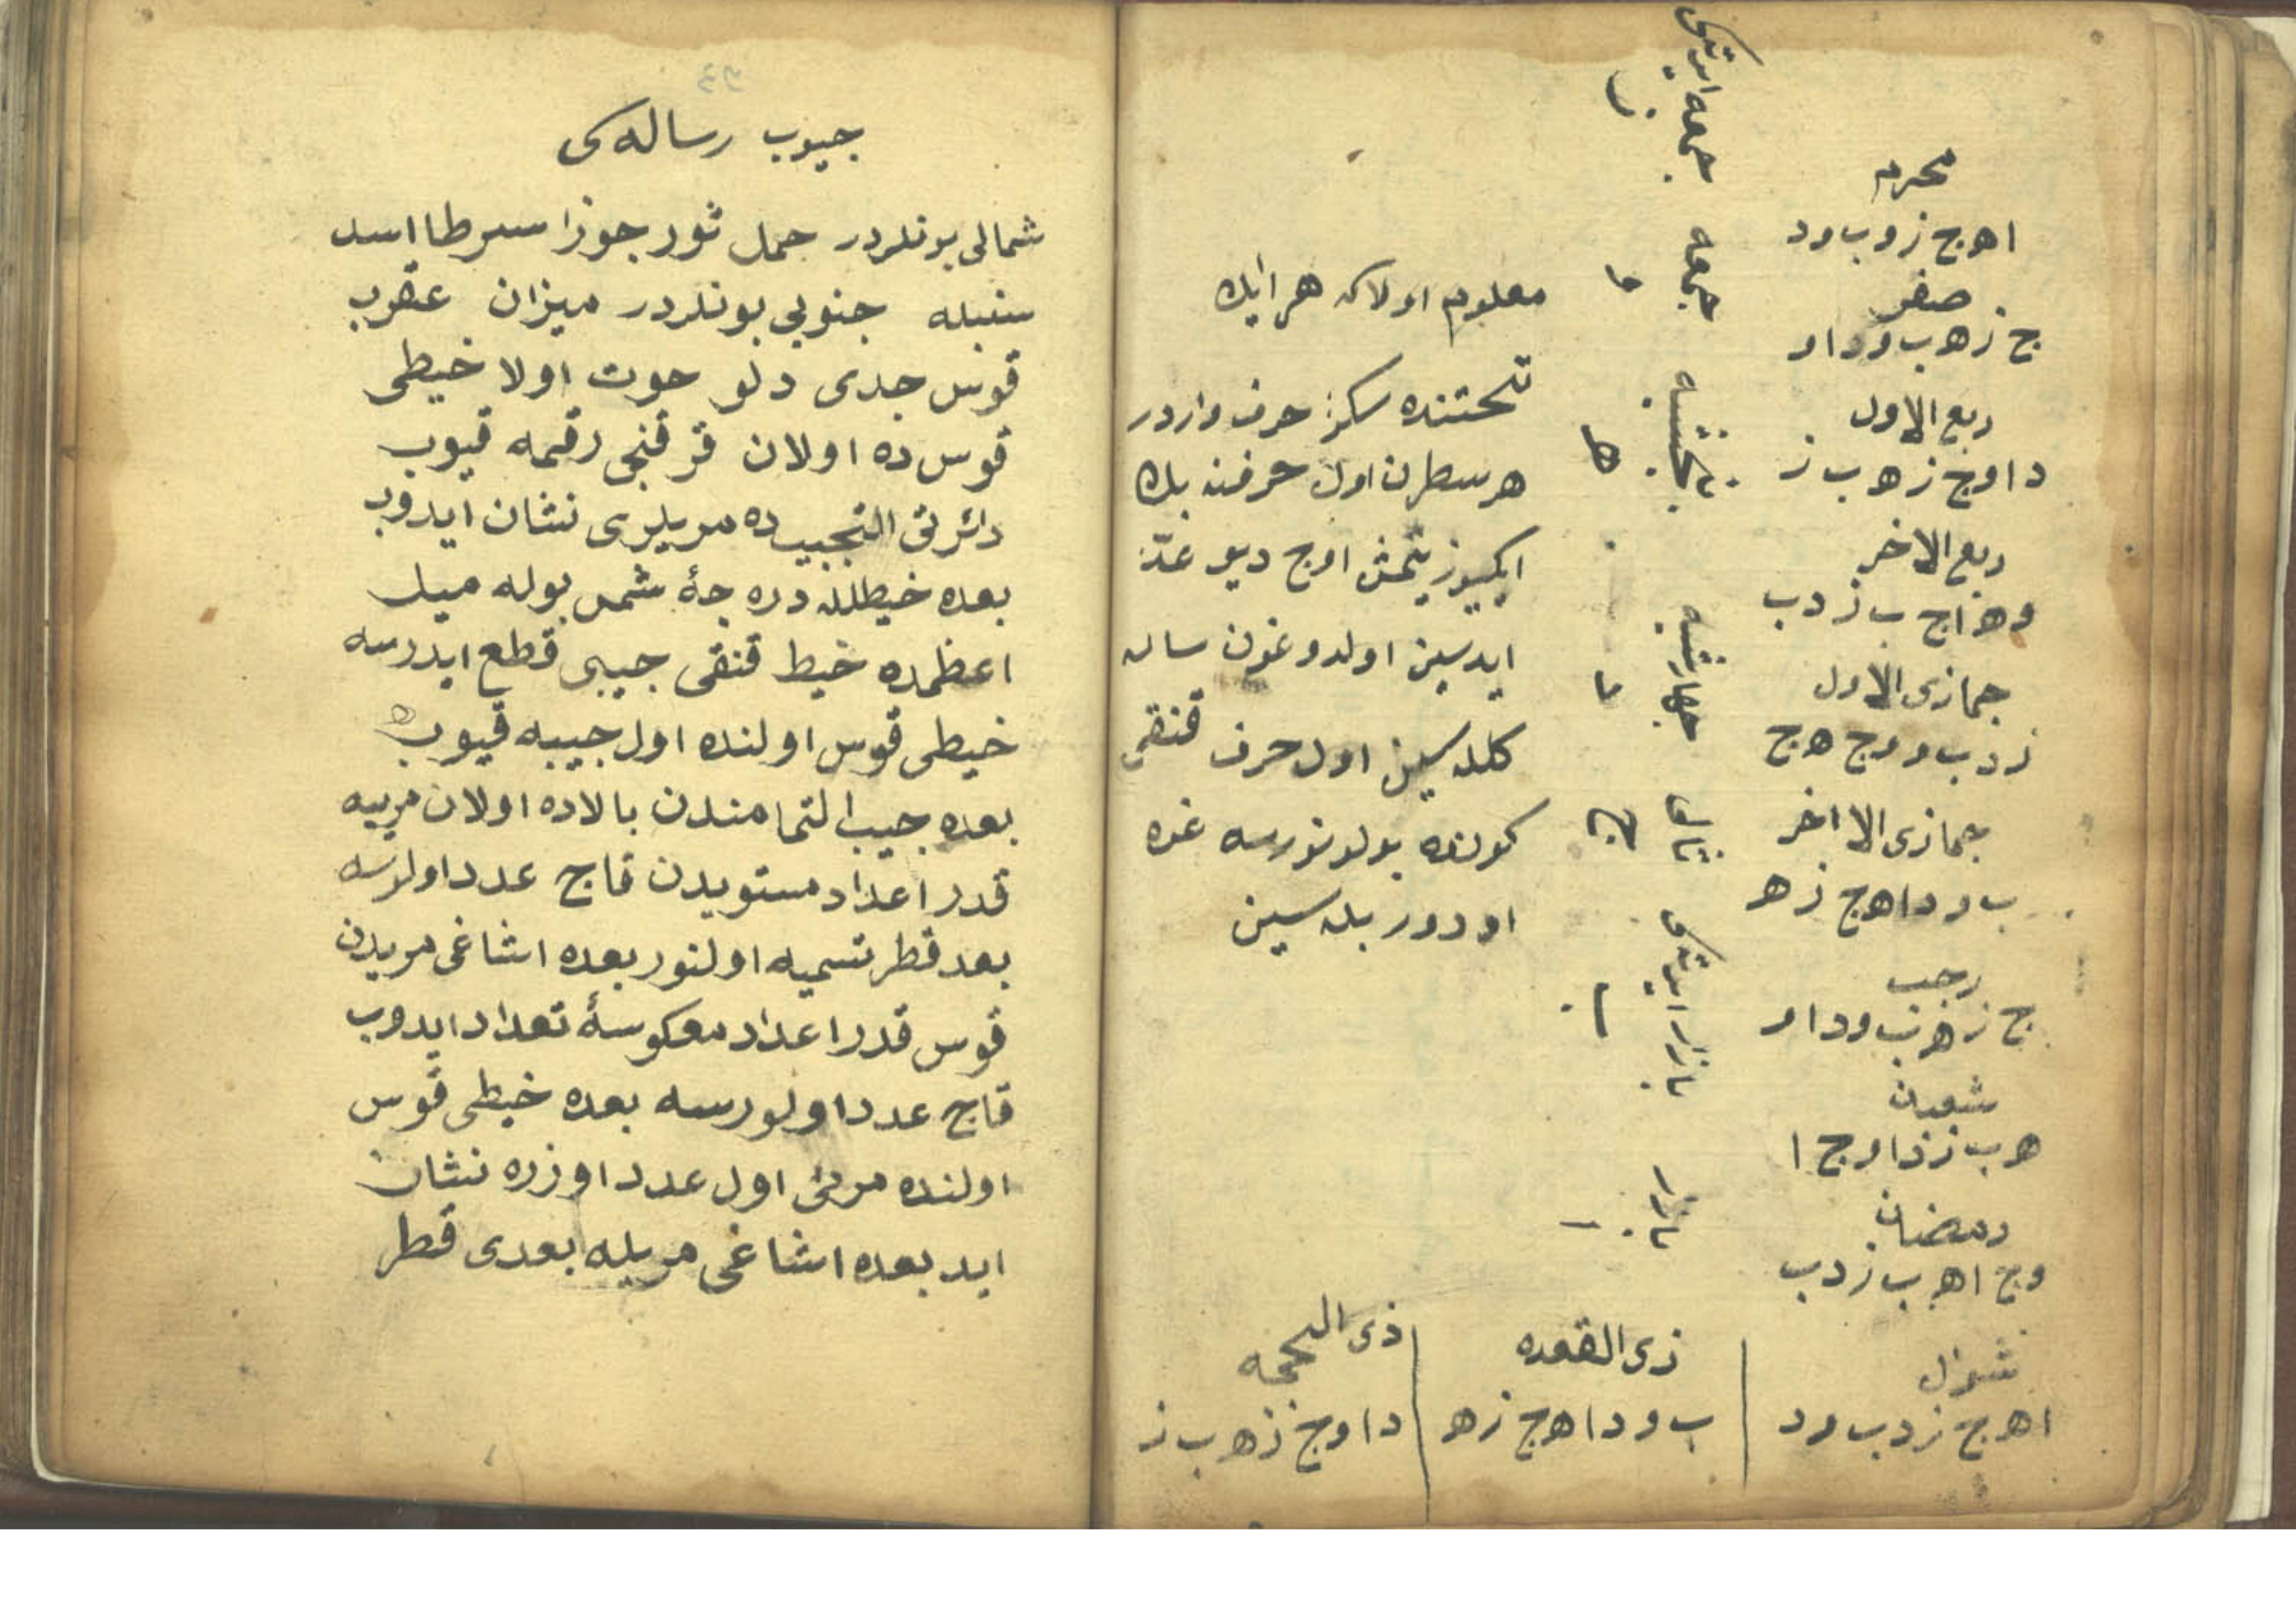 محرم
ا ه ج ز و ب و د
صفر
ج ز ه ب و د ا و
ربيع الاول
د ا و ج ز ه ب ز
ربيع الاخر
و ه ز ا ج ب ز د ب
جمازى الاول
ز د ب و و ج ه ج
جمازى الا اخر
ب و د ا ه ج ز ه
رجب
ج ز ه ب و د ا و
شعبان
ه ب ز ز د ا و ج ا
رمضان
و ج ا ه ب ز د ب
شوال
ا ه ج ز د ب و د
ذى القعده
ب و د ا ه ج ز ه
ذى الحجه
د ا و ج ز ه ب ز
جمعه ايرتسى
ز
جمعه
و
پنجشنبه
ه
چهارشنبه
د
صالى
ج
بازار ايرتسى
ب
بازار
ا
معلوم اولاكه هر ايك
تحتنده سكز حرف واردر
هر سطرن اول حرفنه بك
ايكيوز يتمش اوج ديو عد
ايدسين اولدوغون ساله
كلدسين اول حرف قنقى
كونده بولونورسه غره
اودور بله سين
٤٣
جيوب رساله سى
شمالى بونلردر حمل ثور جوزا سرطا اسد
سنبله جنوبى بونلردر ميزان عقرب
قوس جدى دلو حوت اولا خيطى
قوس ده اولان قرقنجى رقمه قيوب
دائرتى التجيبده مريلرى نشان ايدوب
بعده خيطله دره جۀ شمس بوله ميل
اعظمده خيط قنقى جيبى قطع ايدرسه
خيطى قوس اولنده اول جيبه قيوب
بعده جيب التمامندن بالاده اولان مرييه
قدر اعداد مستويدن قاج عدد اولورسه
بعد قطر تسميه اولنور بعده اشاغى مريدن
قوس قدر اعداد معكوسۀ تعداد ايدوب
قاج عدد اولورسه بعده خيطى قوس
اولنده مرئى اول عدد اوزره نشان
ايد بعده اشاغى مريله بعدى قطر